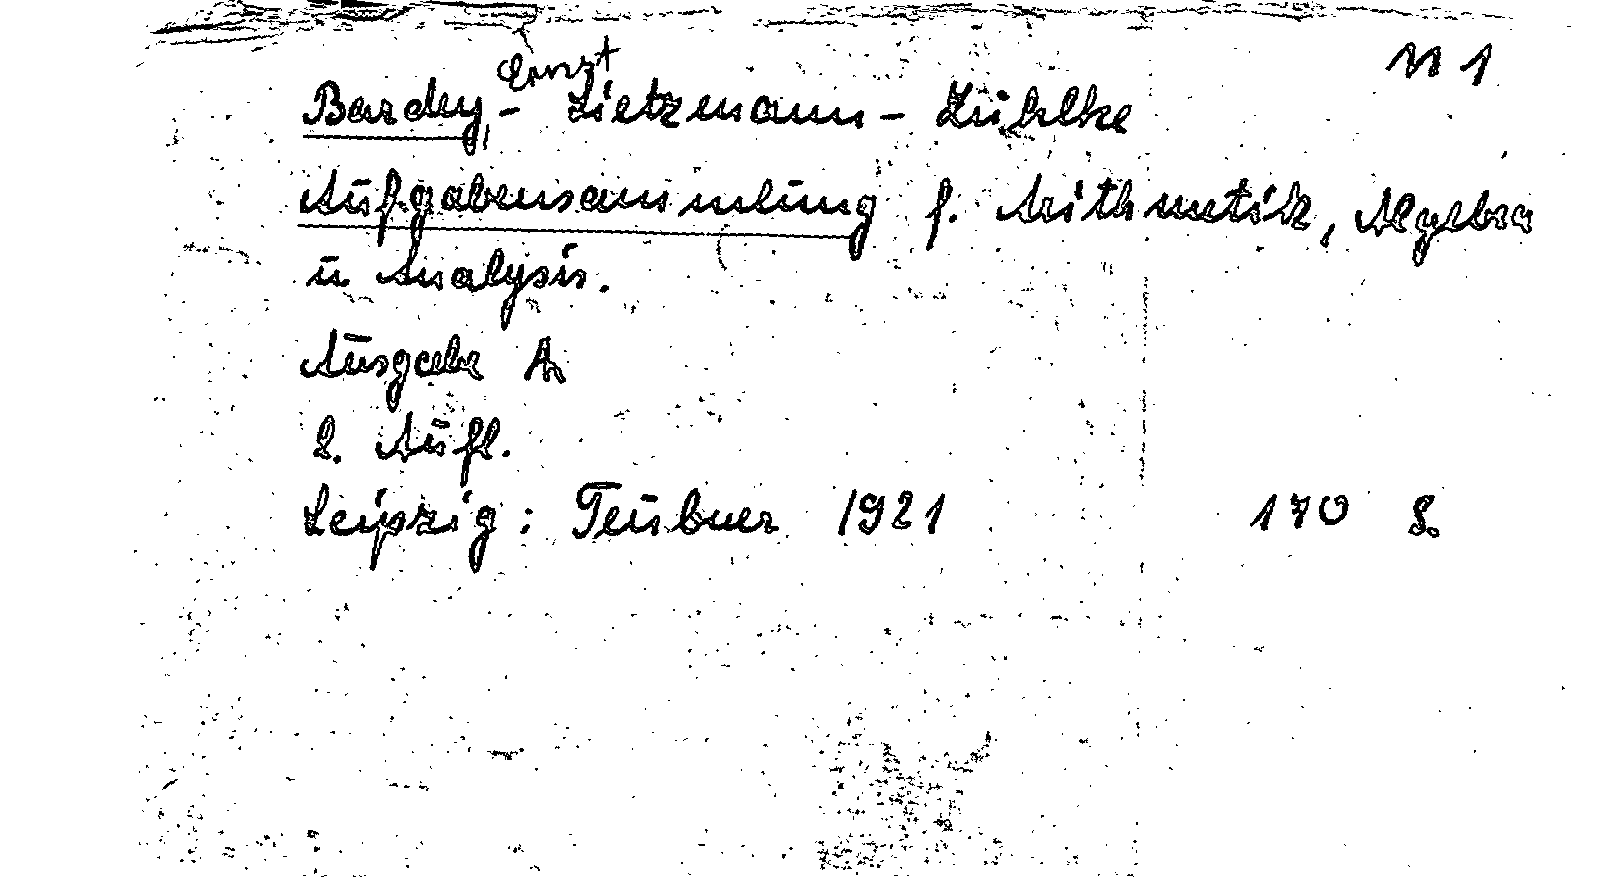 N 1
Bardey, Ernst - Lietzmann - Zühlke
Aufgabensammlung f. Arithmetik, Algebra
u. Analysis.
Ausgabe A
2. Aufl.
Leipzig: Teubner 1921 170 S.